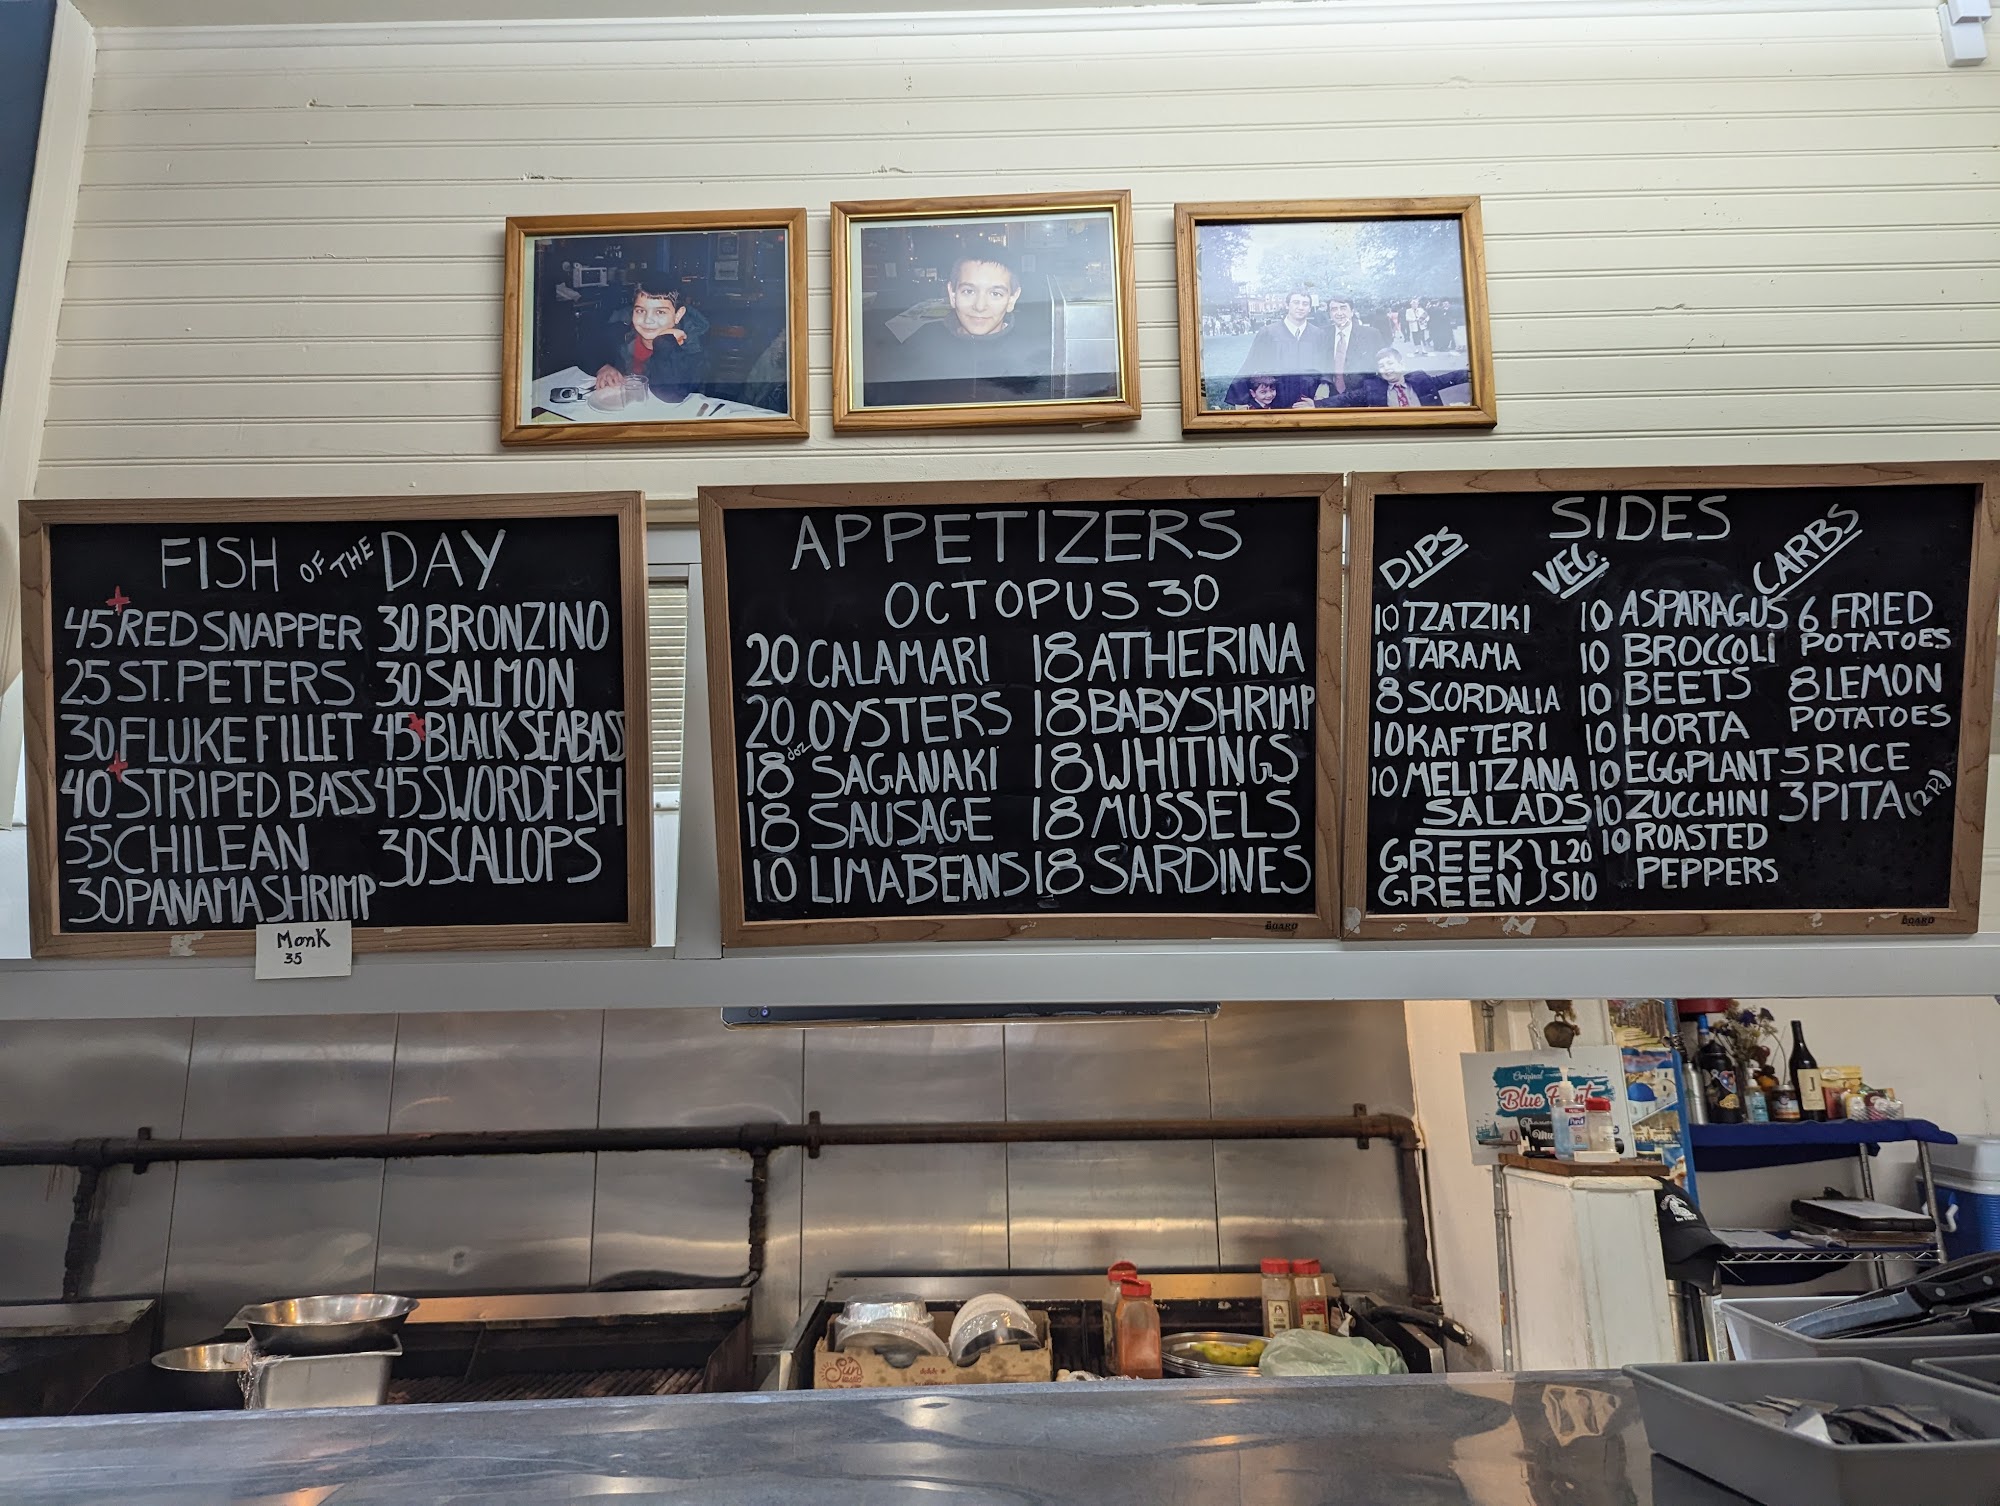 FISH OF THE DAY
45 RED SNAPPER
25 ST. PETERS
30 FLUKE FILLET
40 STRIPED BASS
55 CHILEAN
30 PANAMA SHRIMP
30 BRONZINO
30 SALMON
45 BLACK SEABASS
45 SWORDFISH
30 SCALLOPS
Monk
35
APPETIZERS
OCTOPUS 30
20 CALAMARI
20 OYSTERS
18 SAGANAKI
18 SAUSAGE
10 LIMA BEANS
18 ATHERINA
18 BABY SHRIMP
18 WHITINGS
18 MUSSELS
18 SARDINES
BOARD
SIDES
DIPS
10 TZATZIKI
10 TARAMA
8 SCORDALIA
10 KAFTERI
10 MELITZANA
SALADS
GREEK } L20
GREEN } S10
VEG.
10 ASPARAGUS
10 BROCCOLI
10 BEETS
10 HORTA
10 EGGPLANT
10 ZUCCHINI
10 ROASTED
PEPPERS
CARBS
6 FRIED
POTATOES
8 LEMON
POTATOES
5 RICE
3 PITA (2 Pc)
BOARD
Original
Blue
Sun
J